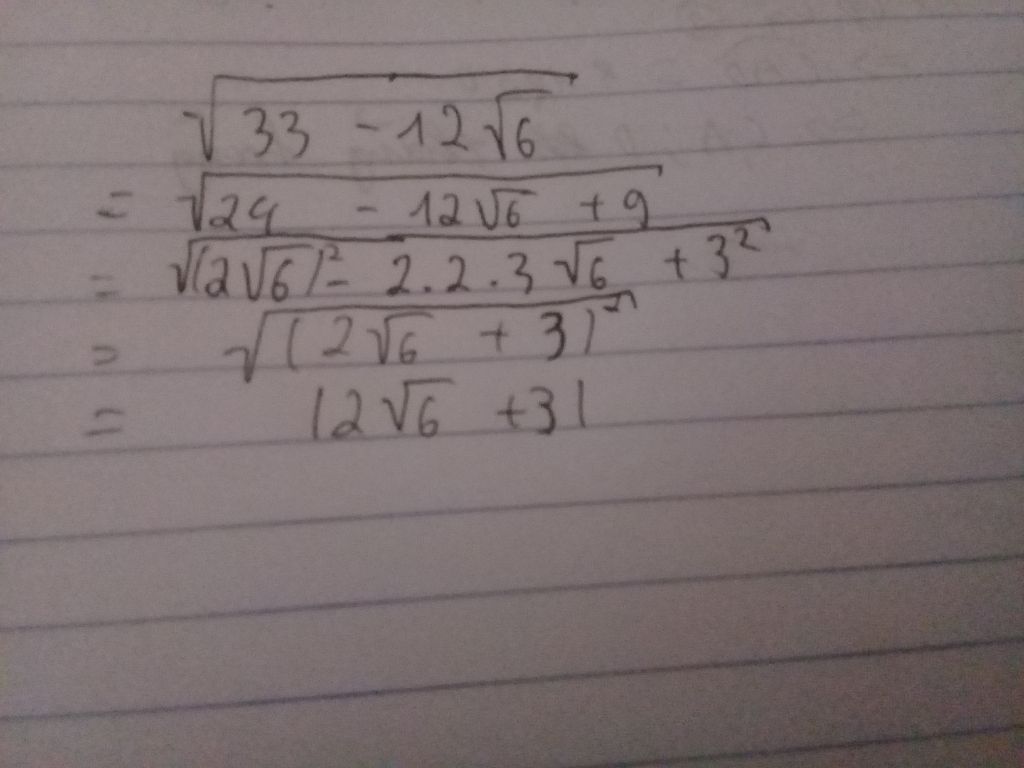 √(33 - 12√6)
= √(24 - 12√6 + 9)
= √((2√6)² - 2.2.3√6 + 3²)
= √((2√6 + 3)²)
= |2√6 + 3|